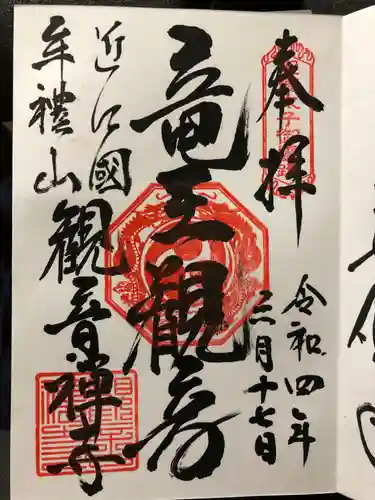 奉拝
令和四年
三月十七日
竜王観音
近江國
牟禮山
観音禅寺